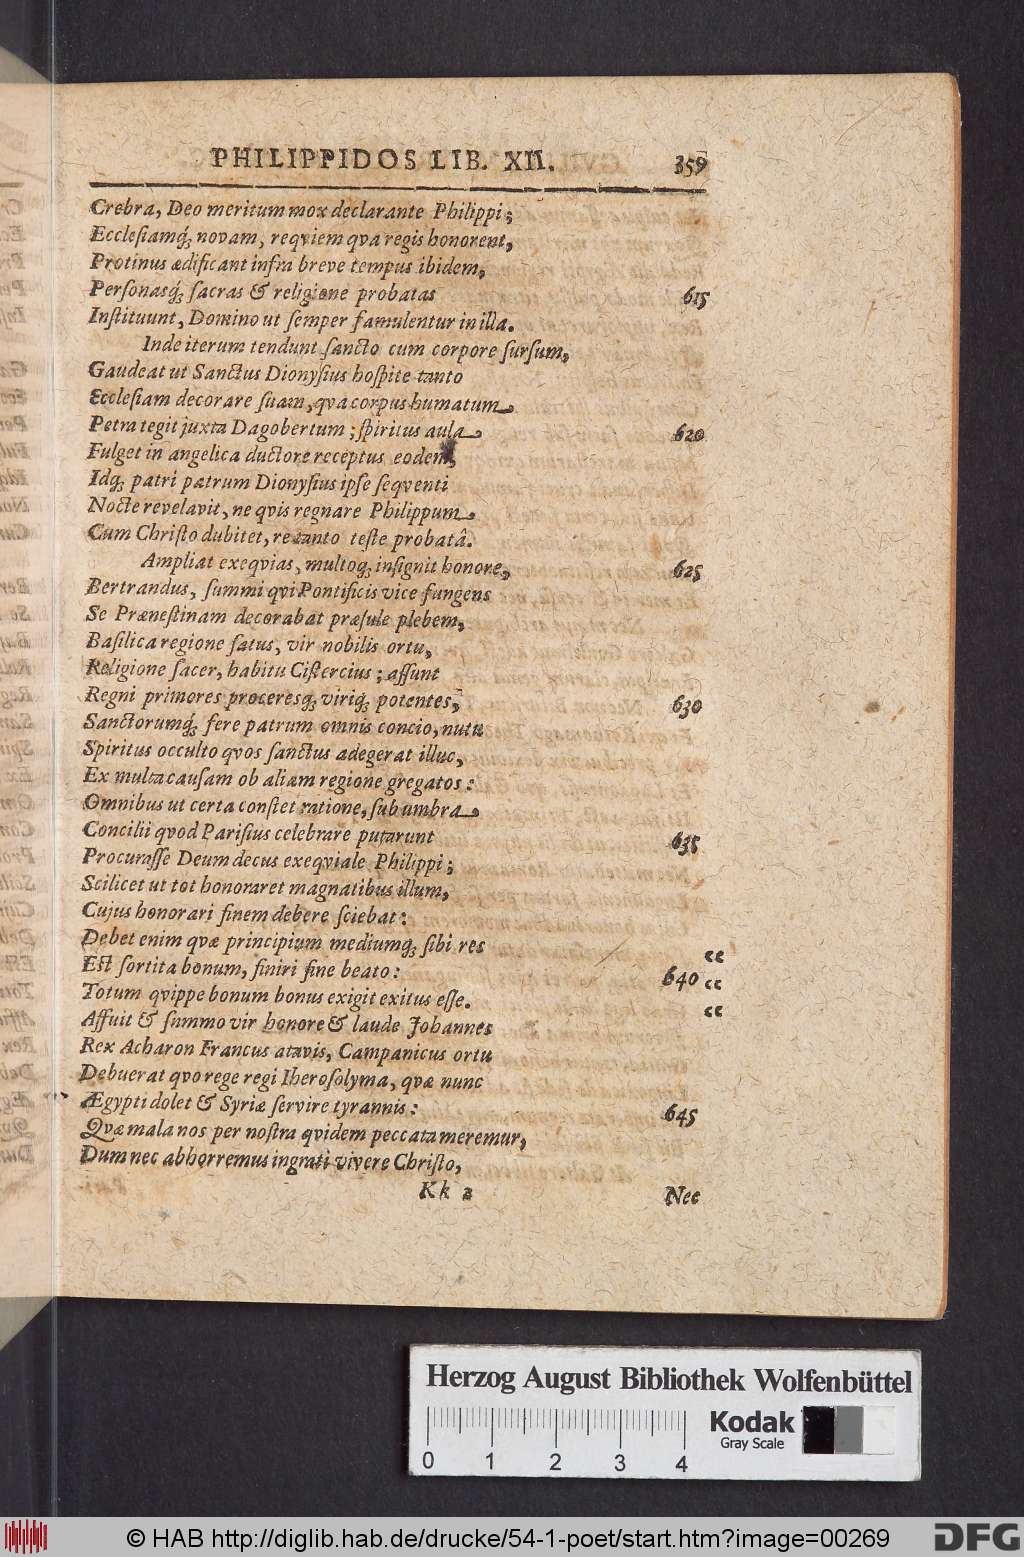 PHILIPPIDOS LIB. XII. 359
Crebra, Deo meritum mox declarante Philippi;
Ecclesiamq; novam, reqviem qva regis honorent,
Protinus ædificant infra breve tempus ibidem,
Personasq; sacras & religione probatas 615
Instituunt, Domino ut semper famulentur in illa.
Inde iterum tendunt sancto cum corpore sursum,
Gaudeat ut Sanctus Dionysius hospite tanto
Ecclesiam decorare suam, qva corpus humatum
Petra tegit juxta Dagobertum; spiritus aula 620
Fulget in angelica ductore receptus eodem,
Idq; patri patrum Dionysius ipse seqventi
Nocte revelavit, ne qvis regnare Philippum
Cum Christo dubitet, re tanto teste probatâ.
Ampliat exeqvias, multoq; insignit honore, 625
Bertrandus, summi qvi Pontificis vice fungens
Se Prænestinam decorabat præsule plebem,
Basilica regione satus, vir nobilis ortu,
Religione sacer, habitu Cistercius; assunt
Regni primores proceresq; viriq; potentes, 630
Sanctorumq; fere patrum omnis concio, nutu
Spiritus occulto qvos sanctus adegerat illuc,
Ex multa causam ob aliam regione gregatos:
Omnibus ut certa constet ratione, sub umbra
Concilii qvod Parisius celebrare putarunt 635
Procurasse Deum decus exeqviale Philippi;
Scilicet ut tot honoraret magnatibus illum,
Cujus honorari finem debere sciebat:
Debet enim qvæ principium mediumq; sibi res “
Est sortita bonum, finiri fine beato: 640 “
Totum qvippe bonum bonus exigit exitus esse. “
Affuit & summo vir honore & laude Johannes
Rex Acharon Francus atavis, Campanicus ortu
Debuerat qvo rege regi Iherosolyma, qvæ nunc
Ægypti dolet & Syriæ servire tyrannis: 645
Qvæ mala nos per nostra qvidem peccata meremur,
Dum nec abhorremus ingrati vivere Christo,
Kk 2 Nec
Herzog August Bibliothek Wolfenbüttel
Kodak
Gray Scale
0 1 2 3 4
© HAB http://diglib.hab.de/drucke/54-1-poet/start.htm?image=00269
DFG